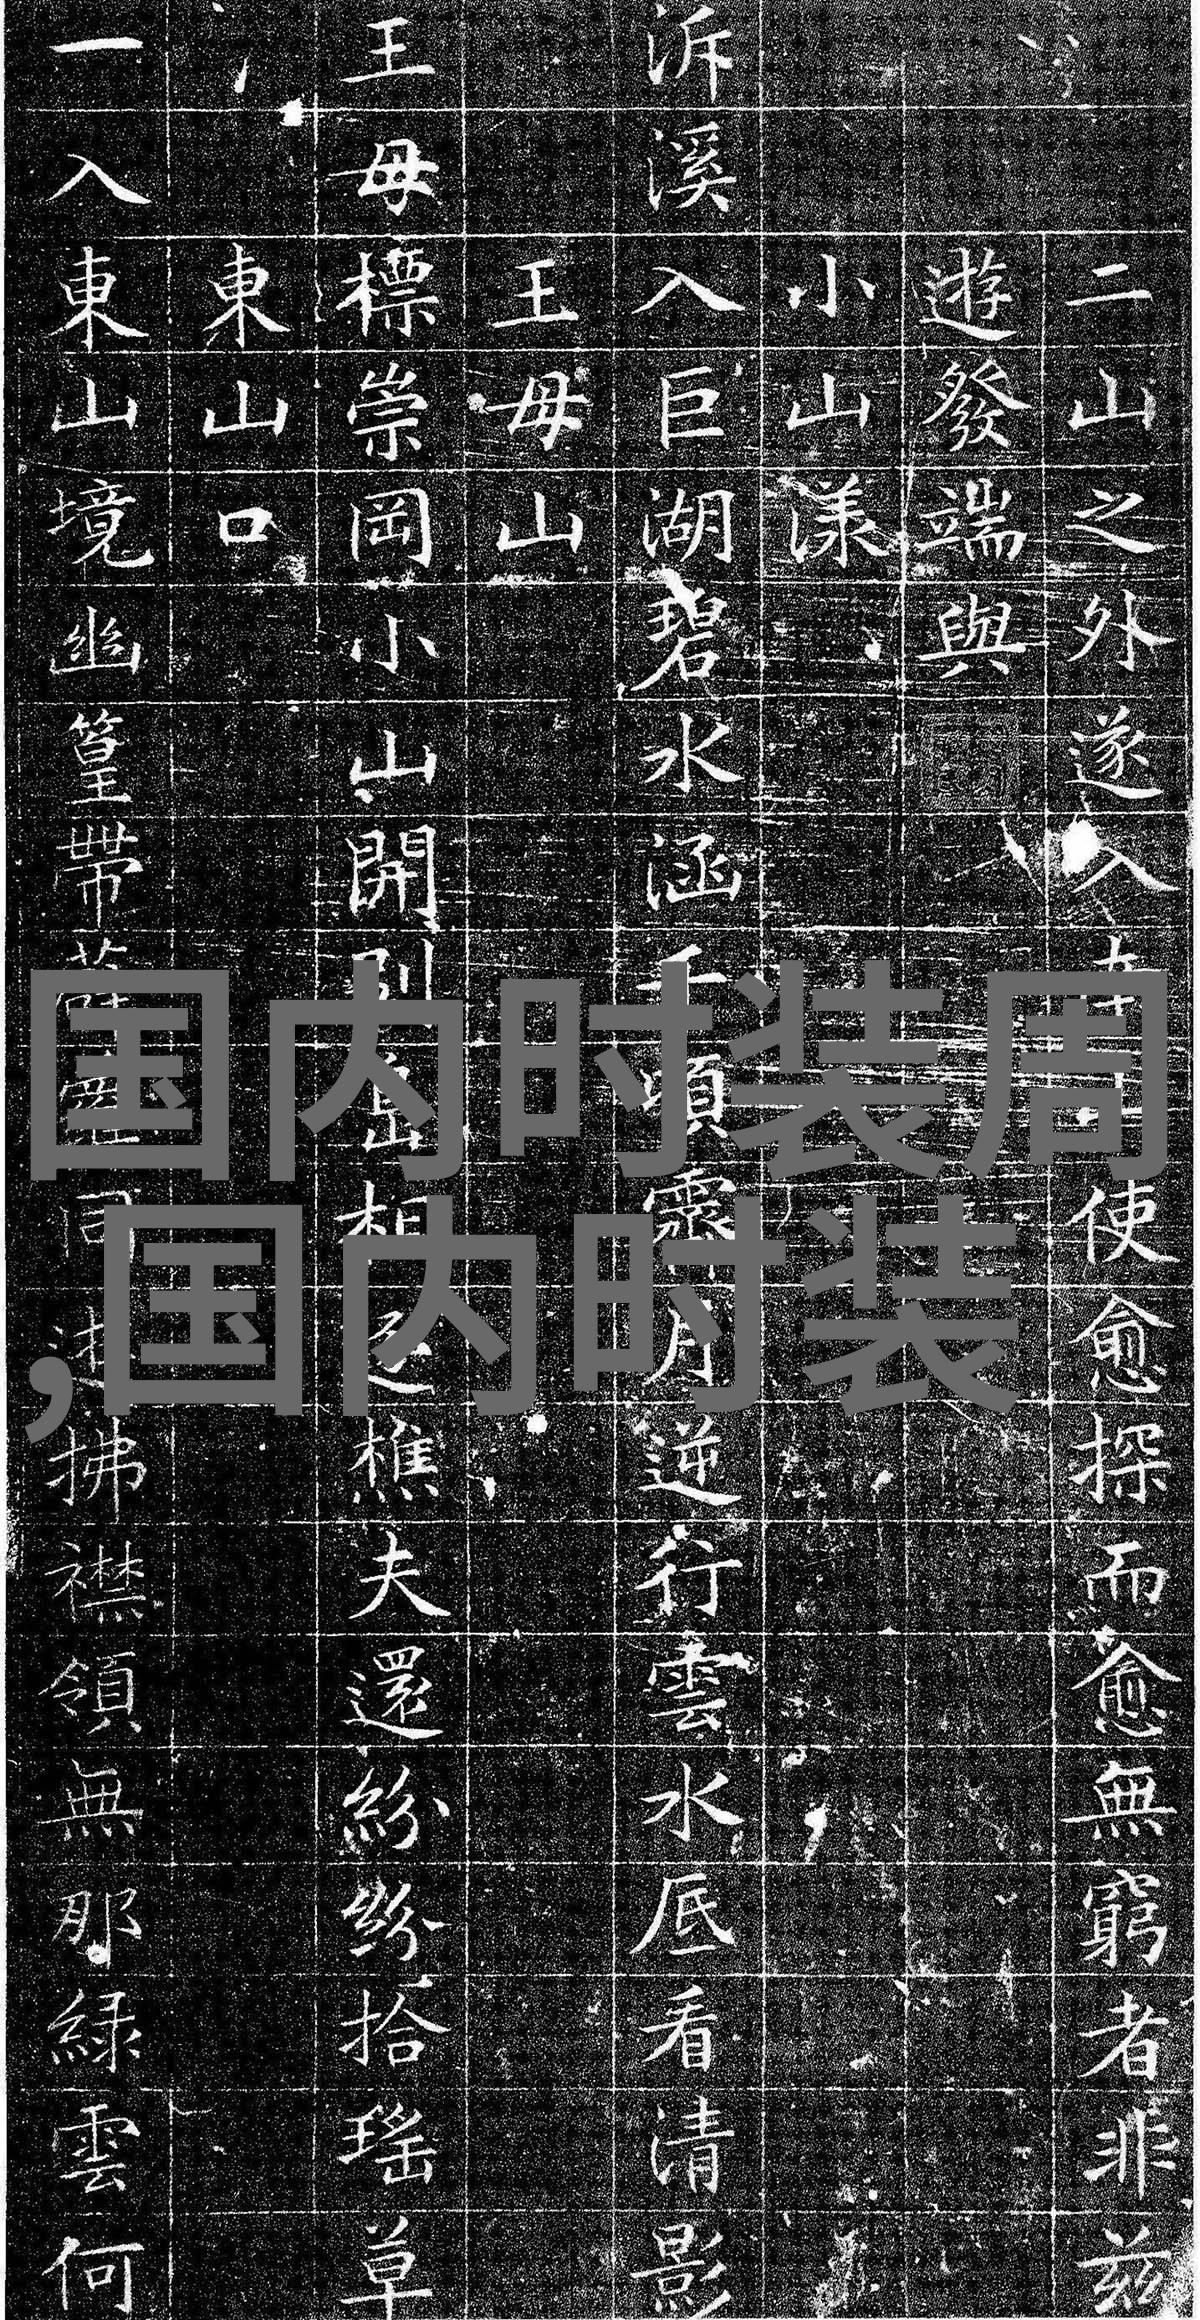 二山之外遂入使愈探而愈無窮者非茲
遊發端與
小山漾
泝溪入巨湖碧水涵千頃月逆行雲水底看清影
王母山
王母標崇岡小山開別相樵夫還紛紛拾瑤草
東山口
一入東山境幽篁帶拂襟領無那綠雲何
国内时装周
,国内时装